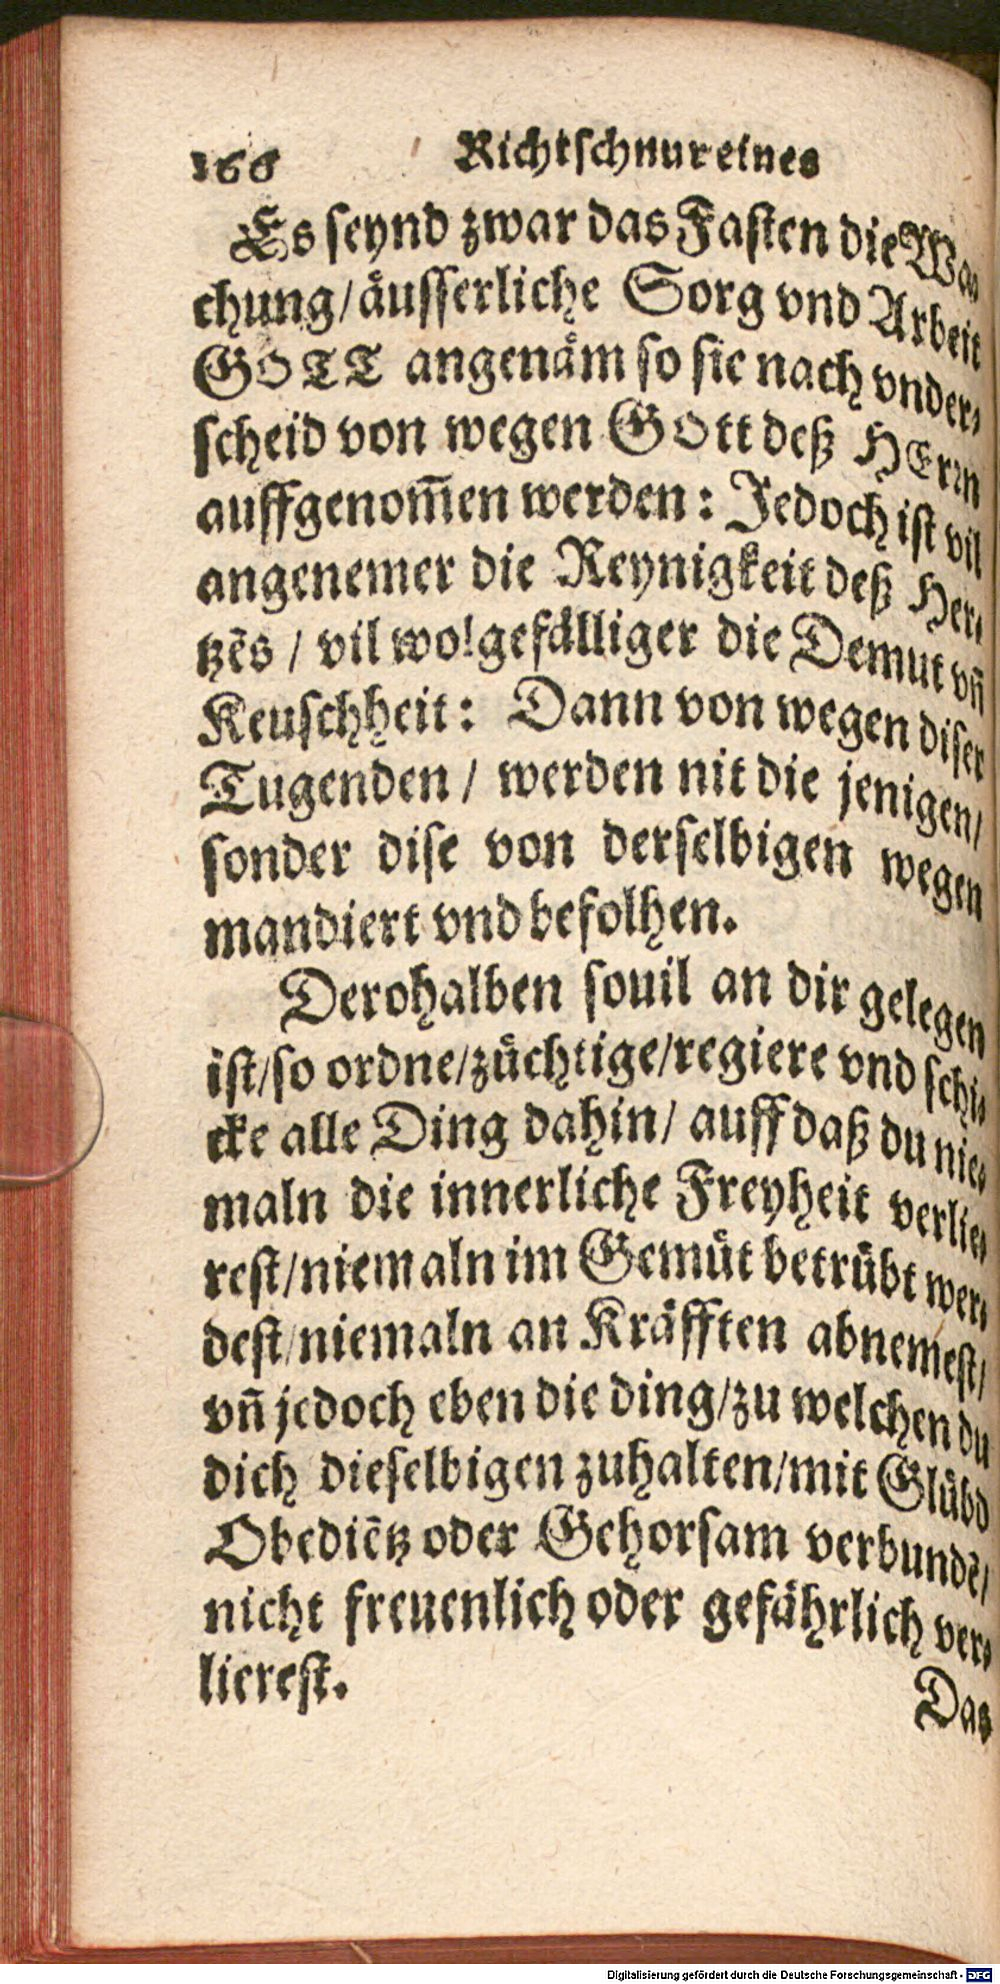 166 Richtschnur eines
Es seynd zwar das Fasten die Wa-
chung/ äusserliche Sorg vnd Arbeit
GOTT angenäm so sie nach vnder-
scheid von wegen GOtt deß HErrn
auffgenom̃en werden: Jedoch ist vil
angenemer die Reynigkeit deß Her-
tzẽs / vil wolgefälliger die Demut vñ
Keuschheit: Dann von wegen diser
Tugenden / werden nit die jenigen/
sonder dise von derselbigen wegen
mandiert vnd befolhen.
Derohalben souil an dir gelegen
ist/so ordne/züchtige/regiere vnd schi-
cke alle Ding dahin/ auff daß du nie-
maln die innerliche Freyheit verlie-
rest/niemaln im Gemüt betrübt wer-
dest/niemaln an Kräfften abnemest/
vñ jedoch eben die ding/zu welchen du
dich dieselbigen zuhalten/mit Glübd
Obediẽtz oder Gehorsam verbundẽ/
nicht freuenlich oder gefährlich ver-
lierest.
Das
Digitalisierung gefördert durch die Deutsche Forschungsgemeinschaft - DFG